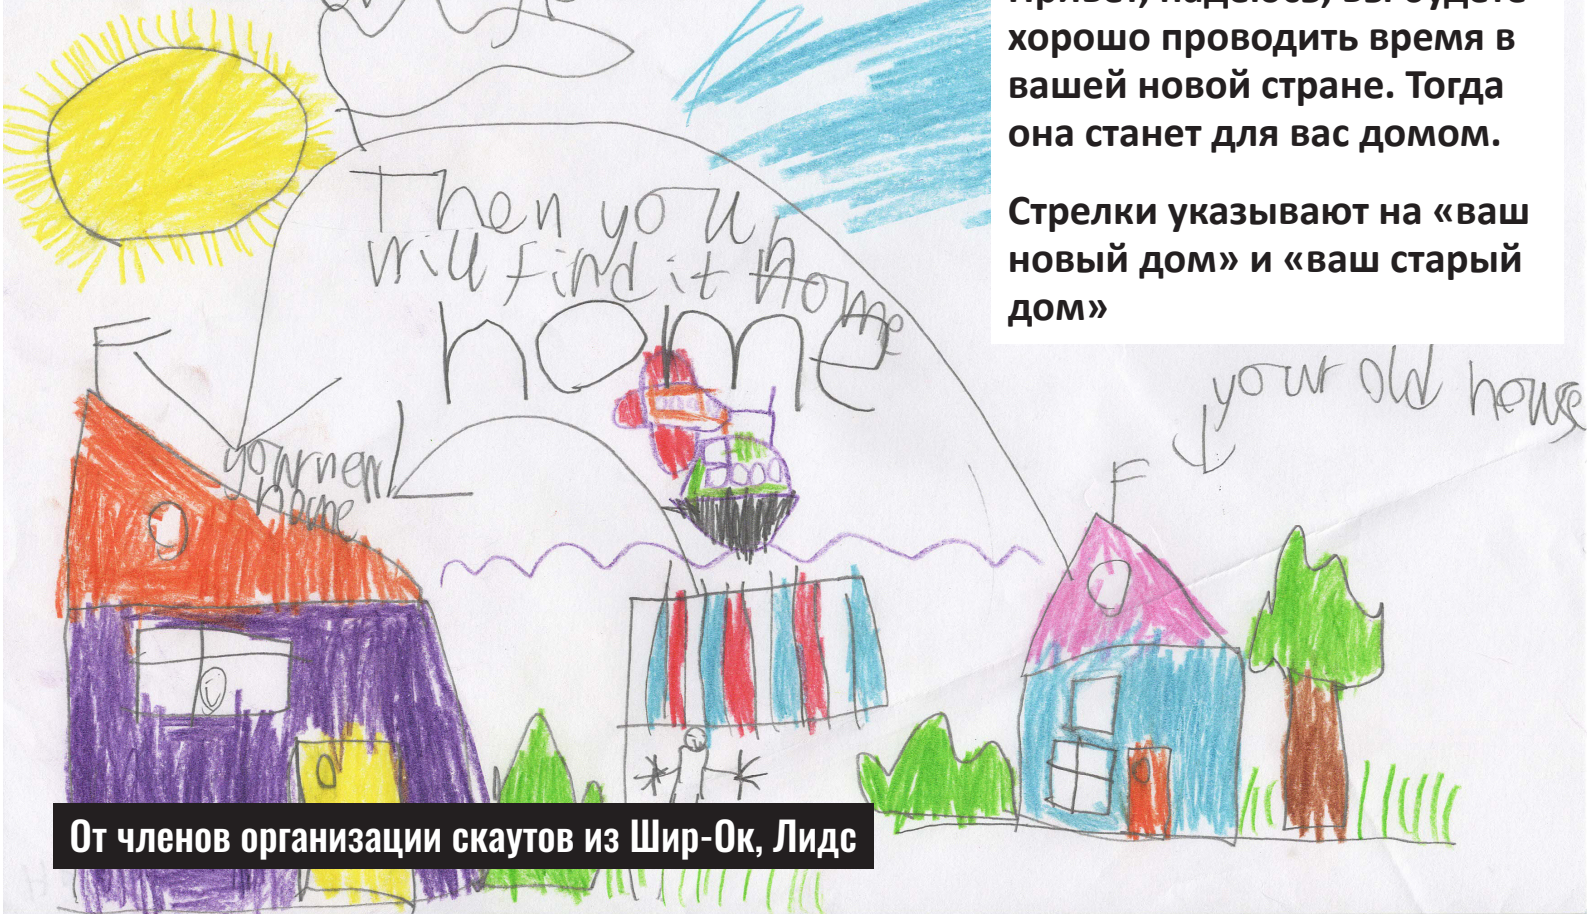 Привет, надеюсь, вы будете
хорошо проводить время в
вашей новой стране. Тогда
она станет для вас домом.
Стрелки указывают на «ваш
новый дом» и «ваш старый
дом»
Then you
will find it home
home
your old house
your new
home
От членов организации скаутов из Шир-Ок, Лидс